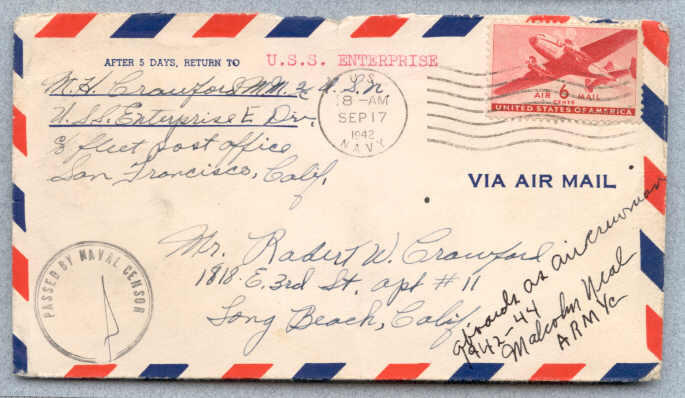 AFTER 5 DAYS, RETURN TO U.S.S. ENTERPRISE
M.H. Crawford MM.2c U.S.N
U.S.S. Enterprise E Div.
c/o fleet post office
San Francisco, Calif.
U.S.
8-AM
SEP 17
1942
NAVY
AIR 6 MAIL
CENTS
UNITED STATES OF AMERICA
VIA AIR MAIL
Mr. Robert W. Crawford
1818 E. 3rd St. apt # 11
Long Beach, Calif
PASSED BY NAVAL CENSOR
aboards as aircrewman
1942-44
Malcolm Neal
ARMYc